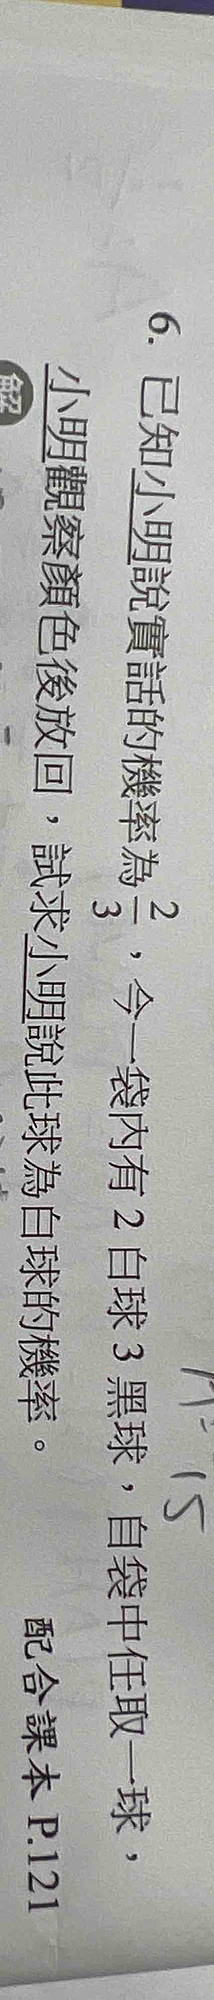 6. 已知小明說實話的機率為2/3，今一袋內有2白球3黑球，自袋中任取一球，
小明觀察顏色後放回，試求小明說此球為白球的機率。 配合課本 P.121
解
15